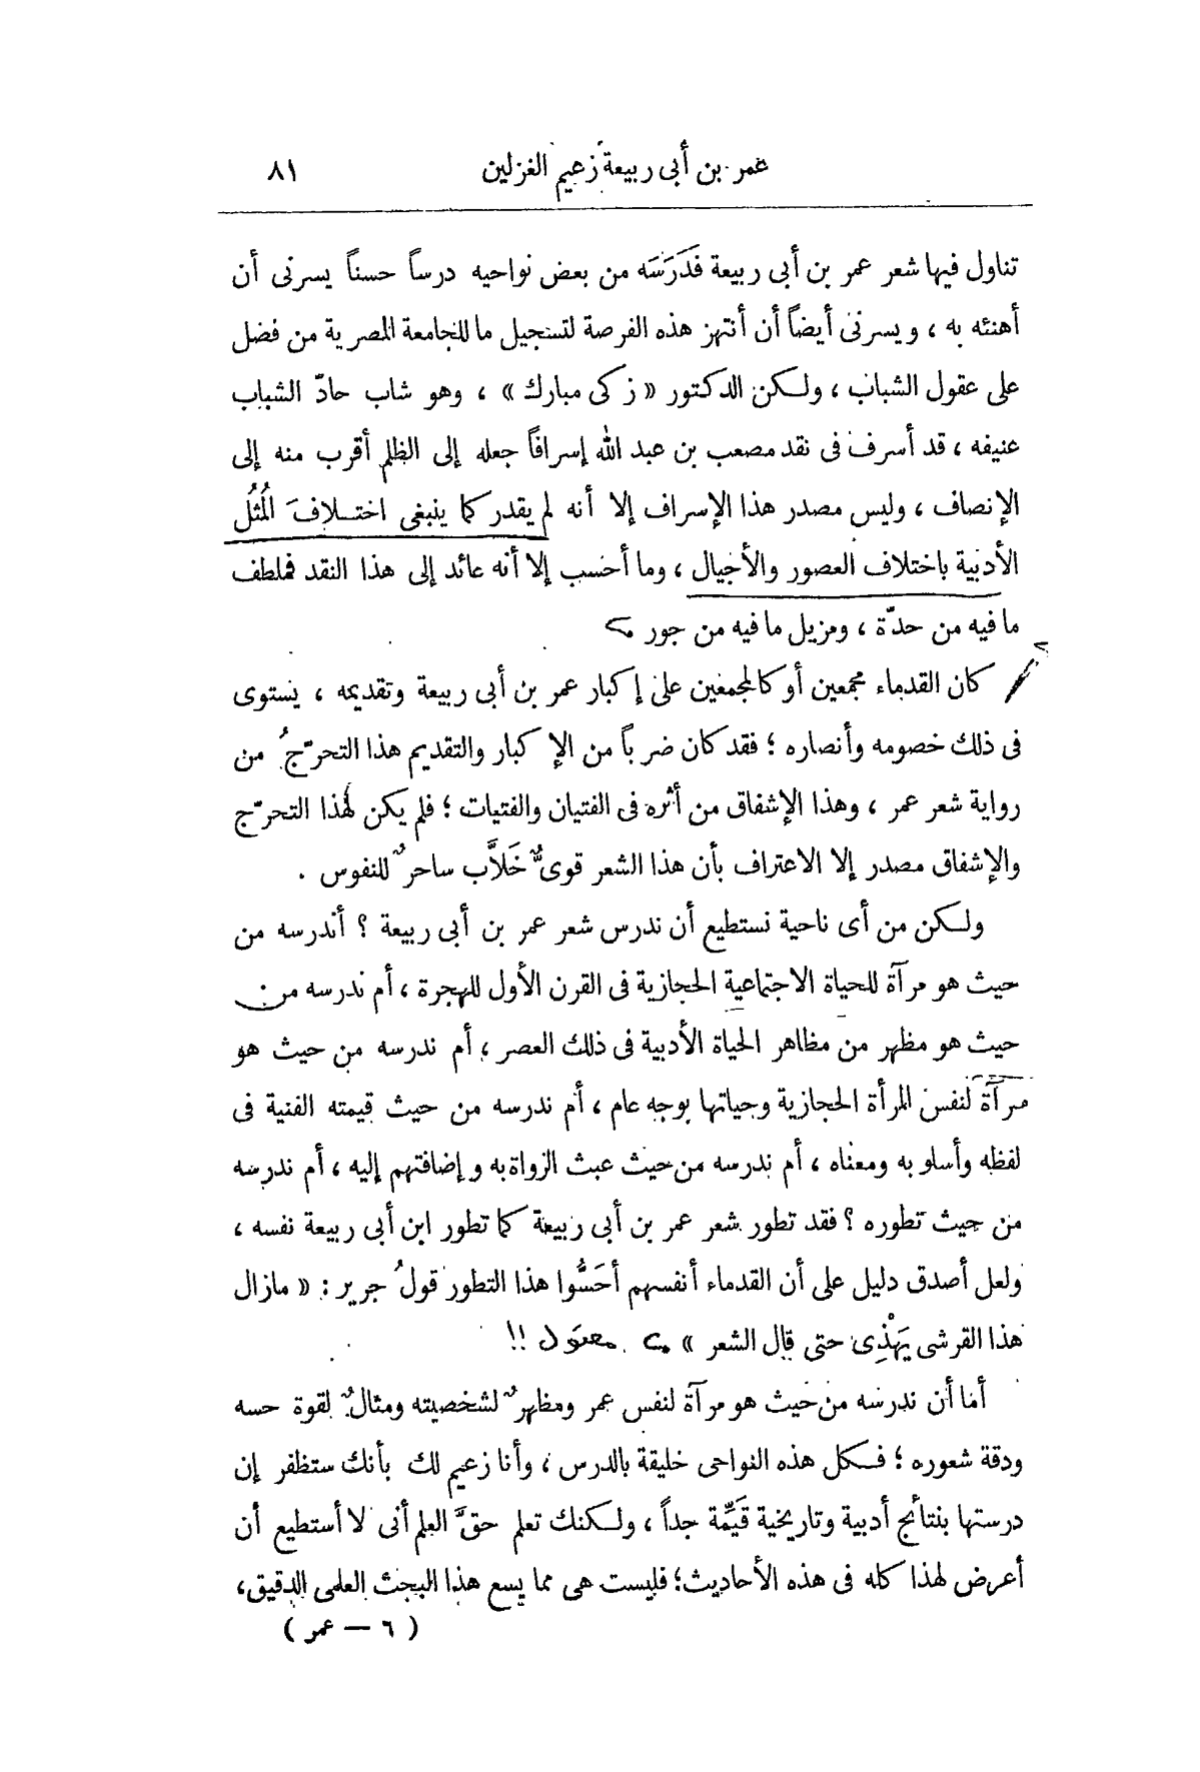 عمر بن أبى ربيعة زعيم الغزلين ٨١
تناول فيها شعر عمر بن أبى ربيعة فدَرَسَه من بعض نواحيه درساً حسناً يسرنى أن
أهنئه به ، ويسرنى أيضاً أن أنتهز هذه الفرصة لتسجيل ما للجامعة المصرية من فضل
على عقول الشباب ، ولكن الدكتور « زكى مبارك » ، وهو شاب حادّ الشباب
عنيفه ، قد أسرف فى نقد مصعب بن عبد الله إسرافاً جعله إلى الظلم أقرب منه إلى
الإنصاف ، وليس مصدر هذا الإسراف إلا أنه لم يقدر كما ينبغى اختلافَ المُثُل
الأدبية باختلاف العصور والأجيال ، وما أحسب إلا أنه عائد إلى هذا النقد فملطف
ما فيه من حدّة ، ومزيل ما فيه من جور
كان القدماء مجمعين أو كالمجمعين على إكبار عمر بن أبى ربيعة وتقديمه ، يستوى
فى ذلك خصومه وأنصاره ؛ فقد كان ضرباً من الإكبار والتقديم هذا التحرّجُ من
رواية شعر عمر ، وهذا الإشفاق من أثره فى الفتيان والفتيات ؛ فلم يكن لهذا التحرّج
والإشفاق مصدر إلا الاعتراف بأن هذا الشعر قوىٌّ خَلاَّب ساحرٌ للنفوس .
ولكن من أى ناحية نستطيع أن ندرس شعر عمر بن أبى ربيعة ؟ أندرسه من
حيث هو مرآة للحياة الاجتماعية الحجازية فى القرن الأول للهجرة ، أم ندرسه من
حيث هو مظهر من مظاهر الحياة الأدبية فى ذلك العصر ، أم ندرسه من حيث هو
مرآة لنفس المرأة الحجازية وحياتها بوجه عام ، أم ندرسه من حيث قيمته الفنية فى
لفظه وأسلوبه ومعناه ، أم ندرسه من حيث عبث الرواة به وإضافتهم إليه ، أم ندرسه
من حيث تطوره ؟ فقد تطور شعر عمر بن أبى ربيعة كما تطور ابن أبى ربيعة نفسه ،
ولعل أصدق دليل على أن القدماء أنفسهم أحَسُّوا هذا التطور قولُ جرير : « مازال
هذا القرشى يَهْذِى حتى قال الشعر » معقول !!
أما أن ندرسه من حيث هو مرآة لنفس عمر ومظهرٌ لشخصيته ومثالٌ لقوة حسه
ودقة شعوره ؛ فكل هذه النواحى خليقة بالدرس ، وأنا زعيم لك بأنك ستظفر إن
درستها بنتائج أدبية وتاريخية قَيِّمة جداً ، ولكنك تعلم حقَّ العلم أنى لا أستطيع أن
أعرض لهذا كله فى هذه الأحاديث؛ فليست هى مما يسع هذا البحث العلمى الدقيق،
( ٦ — عمر )